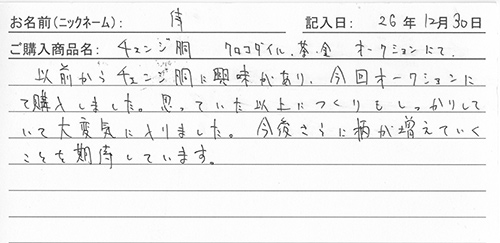 お名前(ニックネーム): 侍 記入日: 26年 12月 30日
ご購入商品名: チェンジ胴 クロコダイル.茶.金 オークションにて.
以前からチェンジ胴に興味があり、今回オークションに
て購入しました。思っていた以上につくりもしっかりして
いて大変気に入りました。今後さらに柄が増えていく
ことを期待しています。